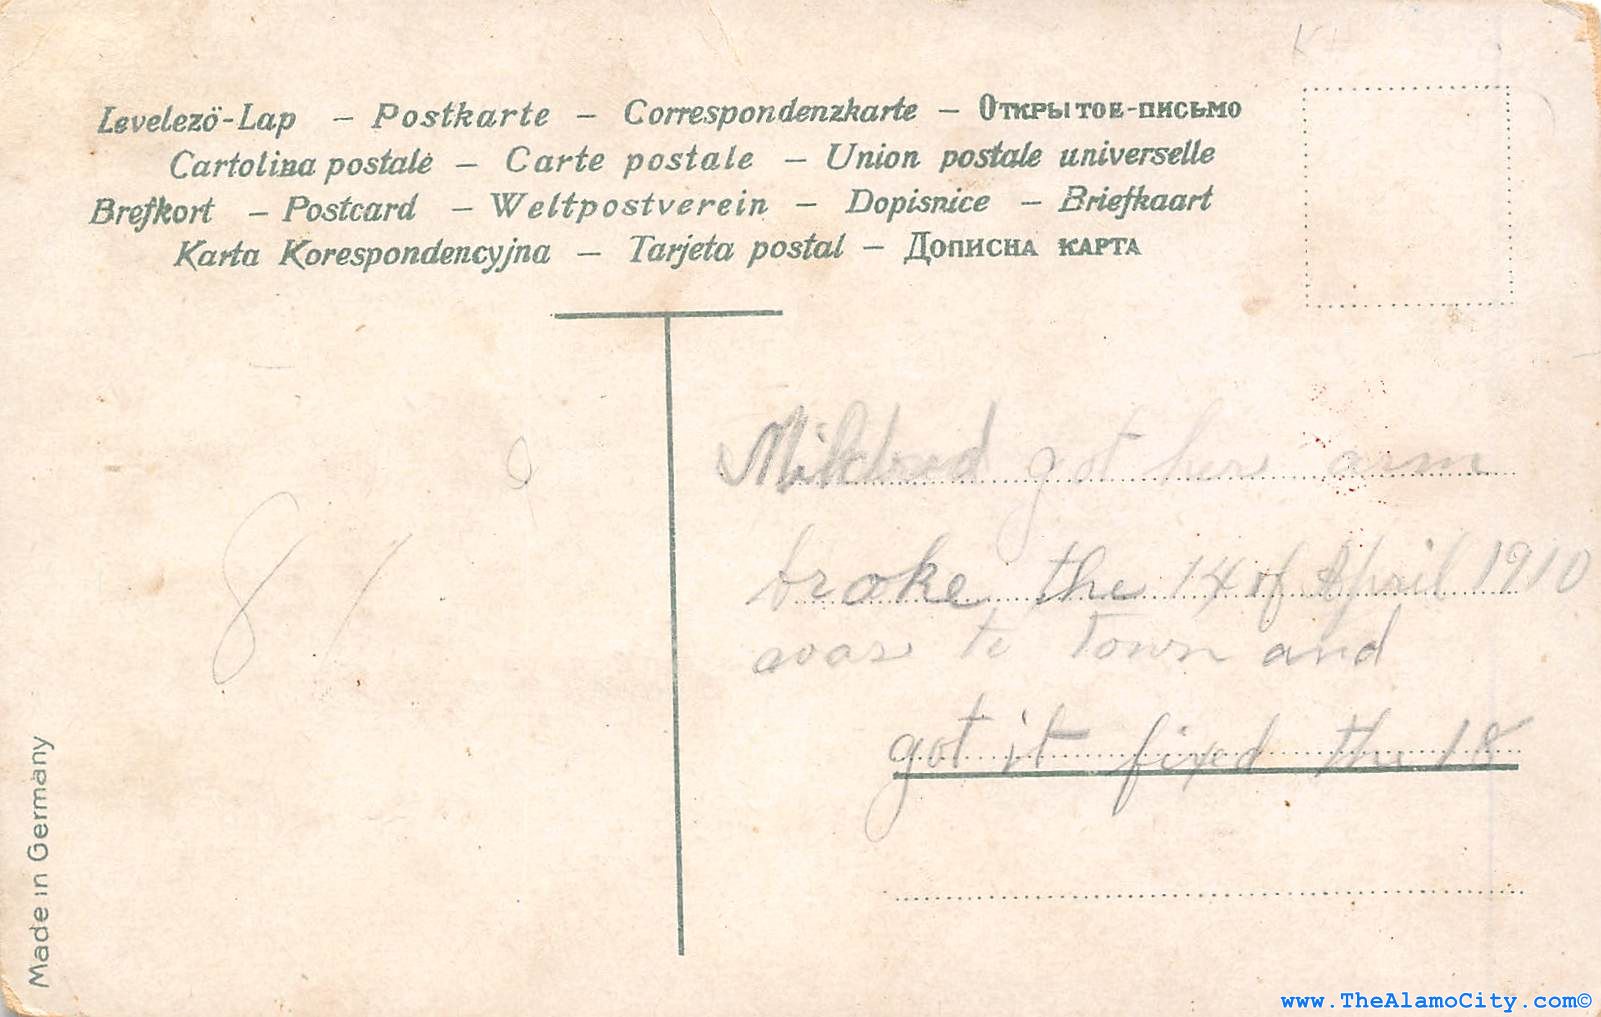 Levelezö-Lap – Postkarte – Correspondenzkarte – Открытое-письмо
Cartolina postale – Carte postale – Union postale universelle
Brefkort – Postcard – Weltpostverein – Dopisnice – Briefkaart
Karta Korespondencyjna – Tarjeta postal – Дописна карта
Mildred got her arm
broke the 14 of April 1910
was to Town and
got it fixed the 18
8 /
Made in Germany
www.TheAlamoCity.com©